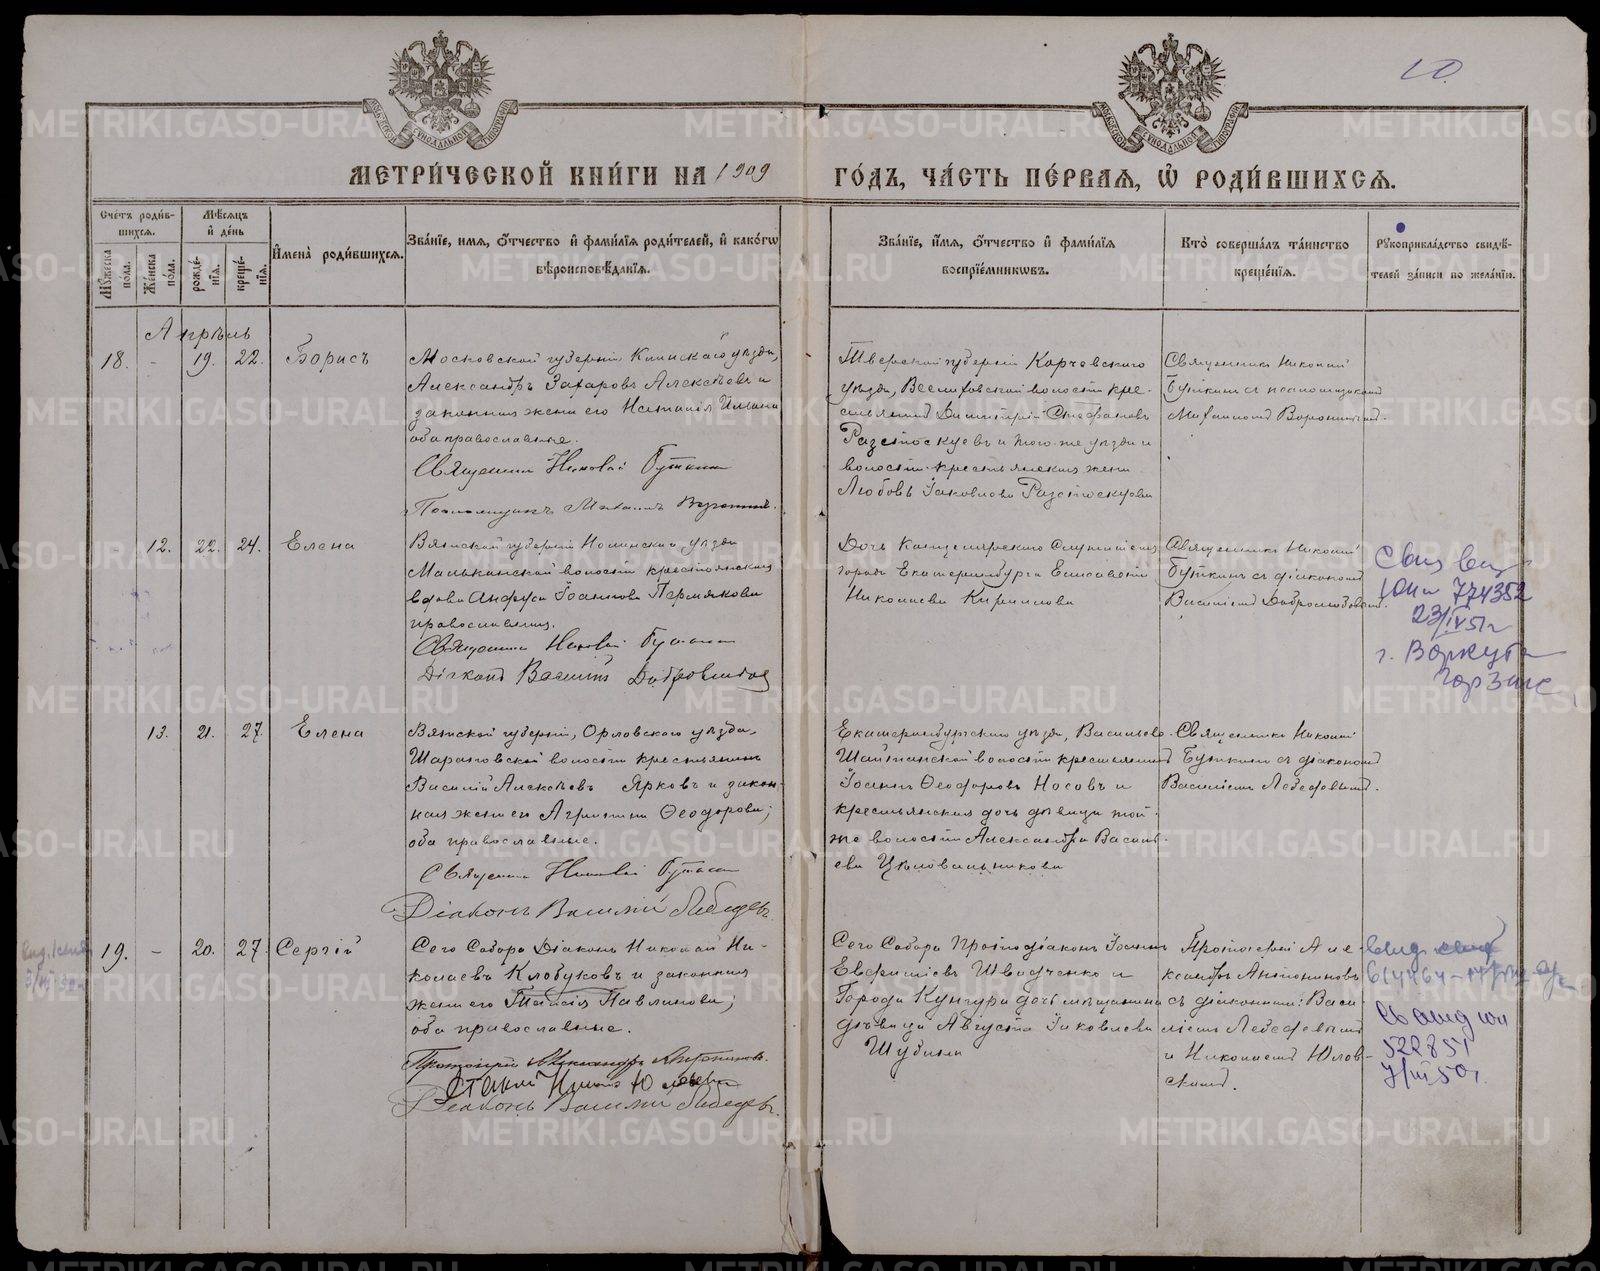 10.
МЕТРИ́ЧЕСКОЙ КНИ́ГИ НА 1909 ГО́ДЪ, ЧА́СТЬ ПЕ́РВАЯ, Ѡ҆ РОДИ́ВШИХСЯ.
Сче́тъ роди́в-шихся.
Мѣ́сяцъ и҆ де́нь
Мꙋ́жеска по́ла.
Же́нска по́ла.
рожде́-нїя.
креще́-нїя.
И҆мена̀ роди́вшихся.
Зва́нїе, имя, ѻ҆́тчество и҆ фами́лїя роди́телей, и҆ како́гѡ
вѣроисповѣ́данїя.
Зва́нїе, и҆́мя, ѻ҆́тчество и҆ фами́лїя
воспрїе́мникѡвъ.
Кто̀ соверша́лъ та́инство
креще́нїя.
Рꙋкоприкла́дство свидѣ́-
телей за́писи по жела́нїю.
Апрѣль
18. - 19. 22. Борисъ
Московской губерніи Клинскаго уѣзда,
Александръ Захаровъ Алексѣевъ и
законная жена его Наталія
оба православные.
Священникъ Николай Буткинъ
Псаломщикъ Михаилъ Воронинъ.
Тверской губерніи Корчевского
уѣзда, волости кре-
стьянинъ Димитрій Стефановъ
Разстоскуевъ и того-же уѣзда и
волости крестьянская жена
Любовь Іаковлева Разстоскуева
Священникъ Николай
Буткинъ съ псаломщикомъ
Михаиломъ Воронинымъ.
12. 22. 24. Елена
Вятской губерніи Нолинскаго уѣзда
волости крестьянская
вдова Анфуса Іоаннова Пермякова
православная.
Священникъ Николай Буткинъ
Діаконъ Василій Добролюбовъ
Дочь Канцелярского Служителя
города Екатеринбурга Елисавета
Николаева Кириллова
Священникъ Николай
Буткинъ съ діакономъ
Василіемъ Добролюбовымъ.
774352
23/IV 51 г
г. Воркута
Горзагс
13. 21. 27. Елена
Вятской губерніи, Орловского уѣзда,
волости крестьянинъ
Василій Алексѣевъ Ярковъ и закон-
ная жена его Агриппина Ѳеодорова;
оба православные.
Священникъ Николай Буткинъ
Діаконъ Василій Лебедевъ.
Екатеринбургского уѣзда, Васильево-
Шайтанской волости крестьянинъ
Іоаннъ Ѳеодоровъ Носовъ и
крестьянская дочь дѣвица той-
же волости Александра Василь-
ева Цѣловальникова
Священникъ Николай
Буткинъ съ діакономъ
Василіемъ Лебедевымъ.
19. - 20. 27. Сергій
Сего Собора Діаконъ Николай Ни-
колаевъ Клобуковъ и законная
жена его Таисія Павлинова;
оба православные.
Протоіерей Александръ Антониновъ.
Діаконъ Василій Лебедевъ.
Сего Собора Протодіаконъ Іоаннъ
Евфиміевъ Шводченко и
Города Кунгура дочь мѣщанина
дѣвица Августа Іаковлева
Шубина
Протоіерей Але-
ксандръ Антониновъ
съ діаконами: Васи-
ліемъ Лебедевымъ
и Николаемъ Юлов-
скимъ.
522851